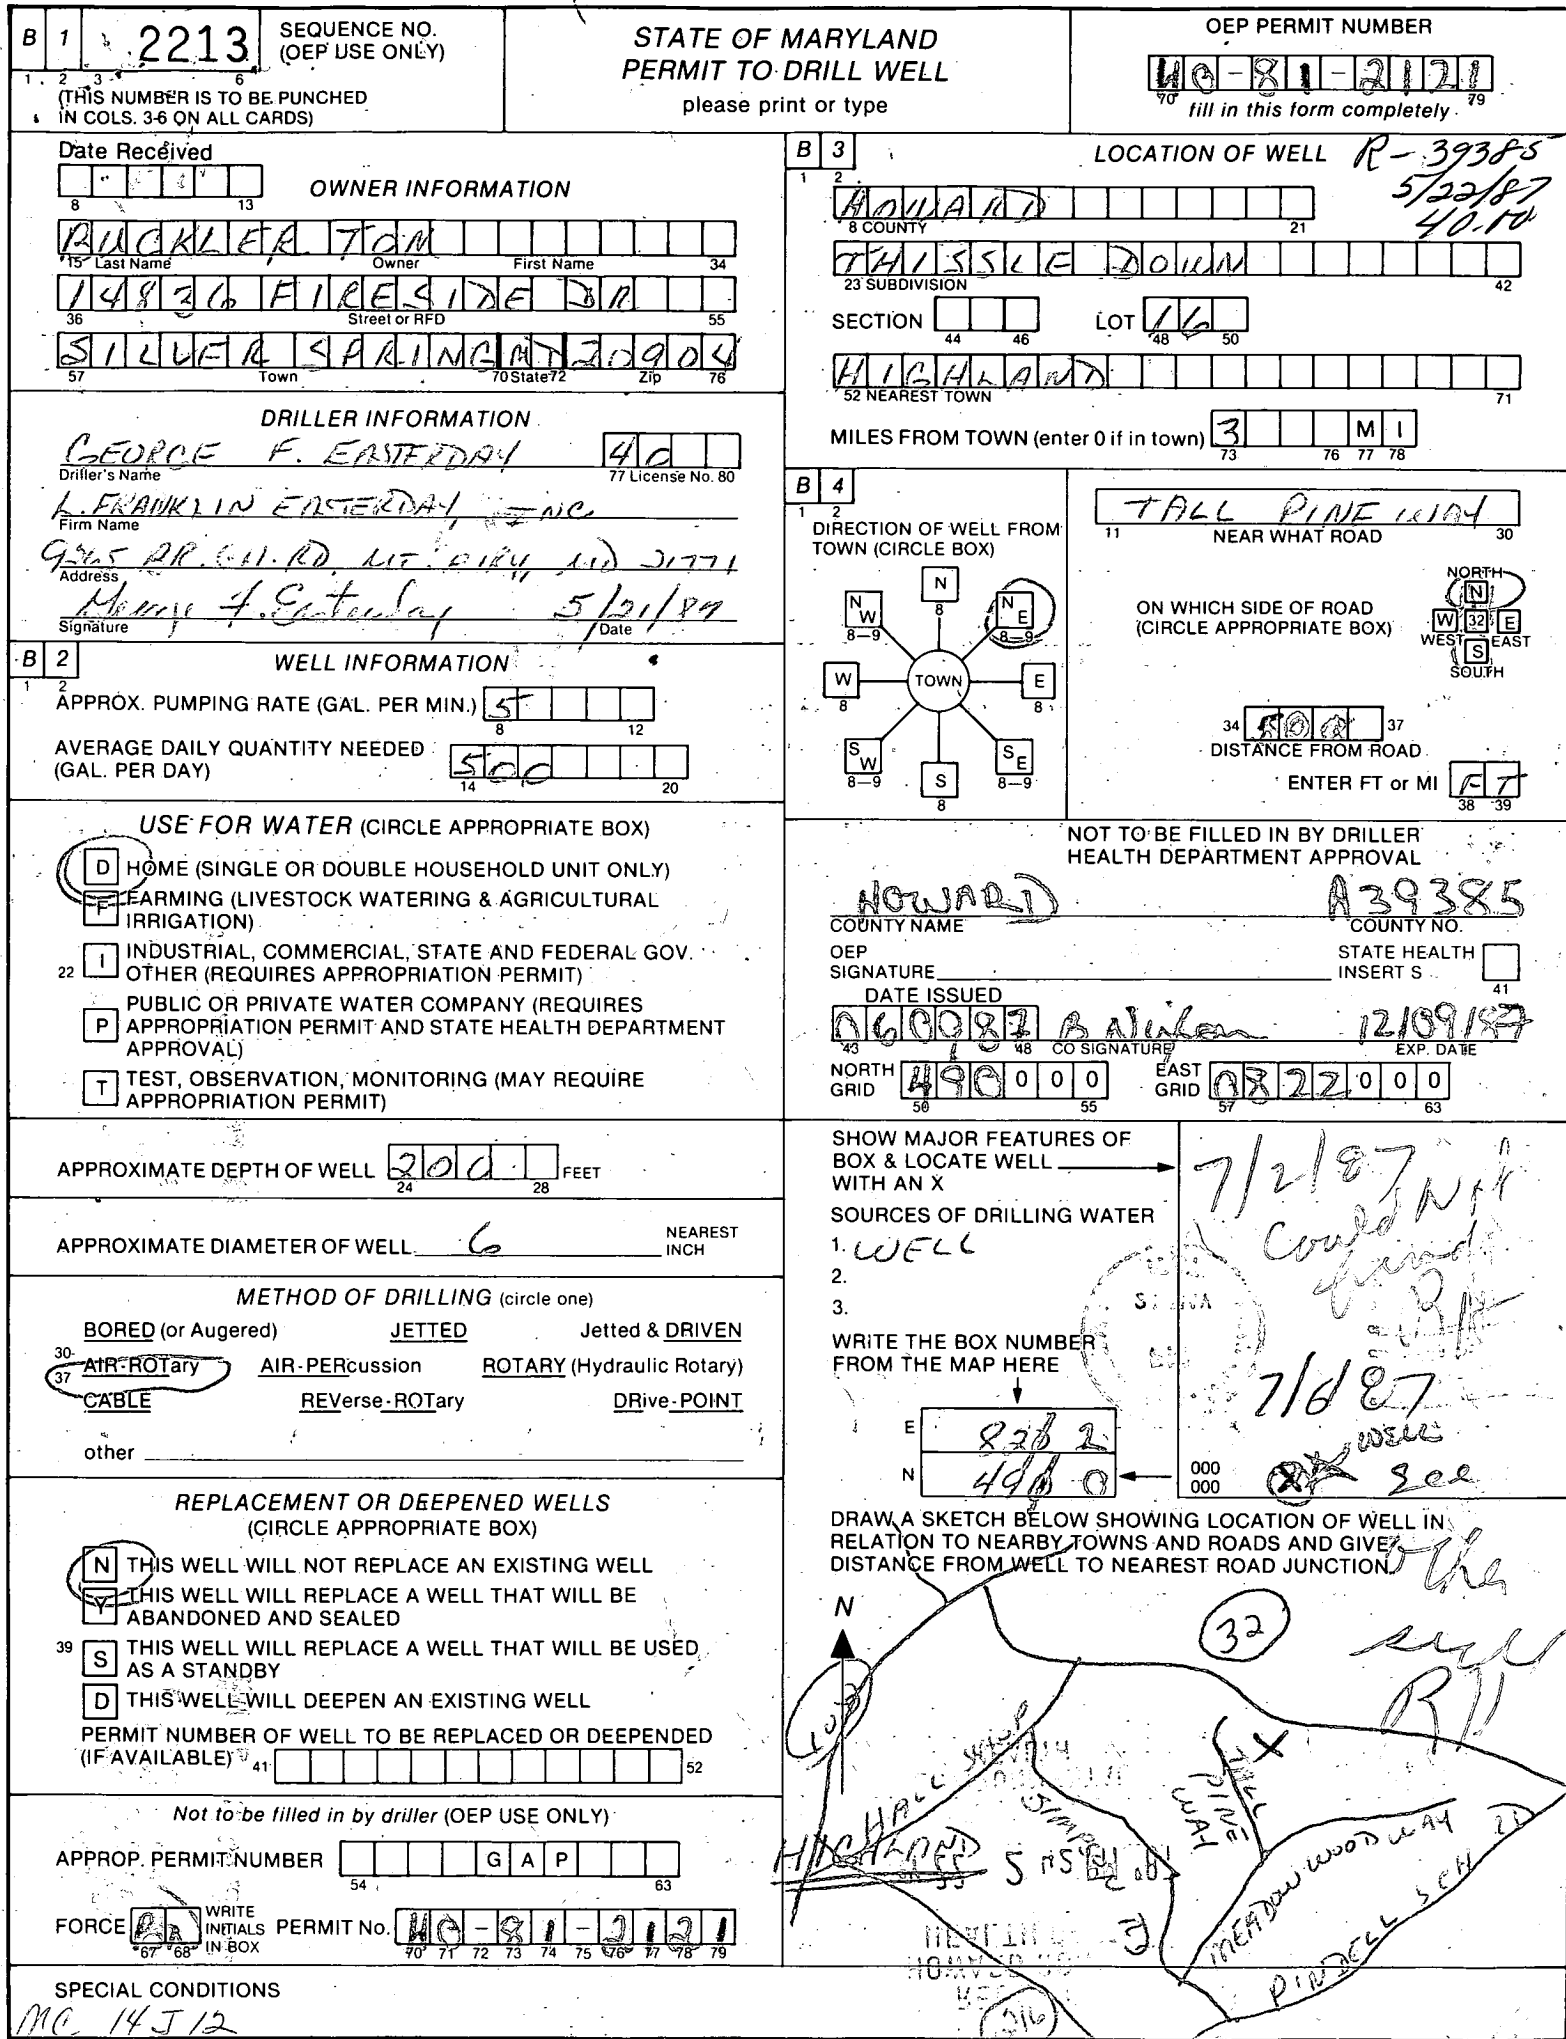 B 1 2213 SEQUENCE NO.
(OEP USE ONLY)
1 2 3 6
(THIS NUMBER IS TO BE PUNCHED
IN COLS. 3-6 ON ALL CARDS)
STATE OF MARYLAND
PERMIT TO DRILL WELL
please print or type
OEP PERMIT NUMBER
HO-81-2121
70 79
fill in this form completely
Date Received
8 13
OWNER INFORMATION
BUCKLER TOM
15 Last Name Owner First Name 34
14836 FIRESIDE DR
36 Street or RFD 55
SILVER SPRING MD 20904
57 Town 70 State 72 Zip 76
DRILLER INFORMATION
GEORGE F. EASTERDAY 40
Driller's Name 77 License No. 80
L. FRANKLIN EASTERDAY, INC.
Firm Name
9265 BR. CH. RD. MT. AIRY, MD 21771
Address
George F. Easterday 5/21/87
Signature Date
B 2 WELL INFORMATION
1 2
APPROX. PUMPING RATE (GAL. PER MIN.) 5
8 12
AVERAGE DAILY QUANTITY NEEDED
(GAL. PER DAY) 500
14 20
USE FOR WATER (CIRCLE APPROPRIATE BOX)
D HOME (SINGLE OR DOUBLE HOUSEHOLD UNIT ONLY)
F FARMING (LIVESTOCK WATERING & AGRICULTURAL
IRRIGATION)
22 I INDUSTRIAL, COMMERCIAL, STATE AND FEDERAL GOV.
OTHER (REQUIRES APPROPRIATION PERMIT)
P PUBLIC OR PRIVATE WATER COMPANY (REQUIRES
APPROPRIATION PERMIT AND STATE HEALTH DEPARTMENT
APPROVAL)
T TEST, OBSERVATION, MONITORING (MAY REQUIRE
APPROPRIATION PERMIT)
APPROXIMATE DEPTH OF WELL 200 FEET
24 28
APPROXIMATE DIAMETER OF WELL 6 NEAREST
INCH
METHOD OF DRILLING (circle one)
BORED (or Augered) JETTED Jetted & DRIVEN
30-37 AIR-ROTary AIR-PERcussion ROTARY (Hydraulic Rotary)
CABLE REVerse-ROTary DRive-POINT
other
REPLACEMENT OR DEEPENED WELLS
(CIRCLE APPROPRIATE BOX)
N THIS WELL WILL NOT REPLACE AN EXISTING WELL
Y THIS WELL WILL REPLACE A WELL THAT WILL BE
ABANDONED AND SEALED
39 S THIS WELL WILL REPLACE A WELL THAT WILL BE USED
AS A STANDBY
D THIS WELL WILL DEEPEN AN EXISTING WELL
PERMIT NUMBER OF WELL TO BE REPLACED OR DEEPENDED
(IF AVAILABLE) 41 52
Not to be filled in by driller (OEP USE ONLY)
APPROP. PERMIT NUMBER GAP
54 63
FORCE WRITE
INITIALS
IN BOX
67 68
PERMIT No. HO-81-2121
70 71 72 73 74 75 76 77 78 79
SPECIAL CONDITIONS
MC 14 J 12
B 3 LOCATION OF WELL R-39385
1 2 5/22/87
40.00
HOWARD
8 COUNTY 21
THISSLE DOWN
23 SUBDIVISION 42
SECTION LOT 16
44 46 48 50
HIGHLAND
52 NEAREST TOWN 71
MILES FROM TOWN (enter 0 if in town) 3 M I
73 76 77 78
B 4
1 2
DIRECTION OF WELL FROM
TOWN (CIRCLE BOX)
N
8
NW NE
8-9 8-9
W TOWN E
8 8
SW SE
8-9 8-9
S
8
TALL PINE WAY
11 NEAR WHAT ROAD 30
ON WHICH SIDE OF ROAD
(CIRCLE APPROPRIATE BOX)
NORTH
N
W 32 E
WEST EAST
S
SOUTH
34 500 37
DISTANCE FROM ROAD
ENTER FT or MI FT
38 39
NOT TO BE FILLED IN BY DRILLER
HEALTH DEPARTMENT APPROVAL
HOWARD A39385
COUNTY NAME COUNTY NO.
OEP
SIGNATURE
STATE HEALTH
INSERT S
41
DATE ISSUED
12/09/87
43 48 CO SIGNATURE EXP. DATE
NORTH
GRID 490 000
50 55
EAST
GRID 0822 000
57 63
SHOW MAJOR FEATURES OF
BOX & LOCATE WELL
WITH AN X
SOURCES OF DRILLING WATER
1. WELL
2.
3.
WRITE THE BOX NUMBER
FROM THE MAP HERE
E 822
N 490
000
000
7/2/87
Could Not
find
RH
7/6/87
WELL
X See
other
side
DRAW A SKETCH BELOW SHOWING LOCATION OF WELL IN
RELATION TO NEARBY TOWNS AND ROADS AND GIVE
DISTANCE FROM WELL TO NEAREST ROAD JUNCTION
N
32
108
HALL SHOP
HIGHLAND
TALL PINE WAY
X
MEADOW WOOD WAY
PINDELL SCH RD
216